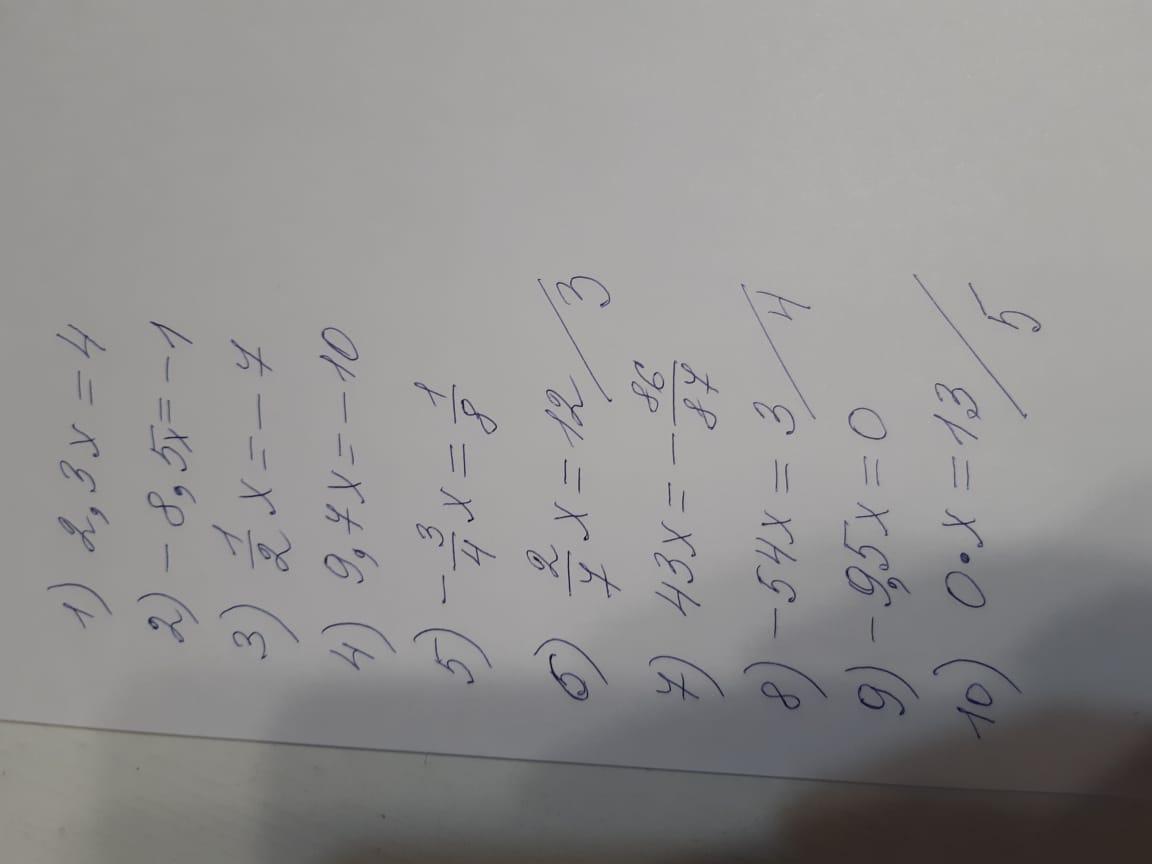 1) 2,3x = 4
2) -8,5x = -1
3) 1/2 x = -7
4) 9,7x = -10
5) -3/4 x = 1/8
6) 2/7 x = 12 / 3
7) 43x = -86/87
8) -54x = 3 / 4
9) -9,5x = 0
10) 0·x = 13 / 5